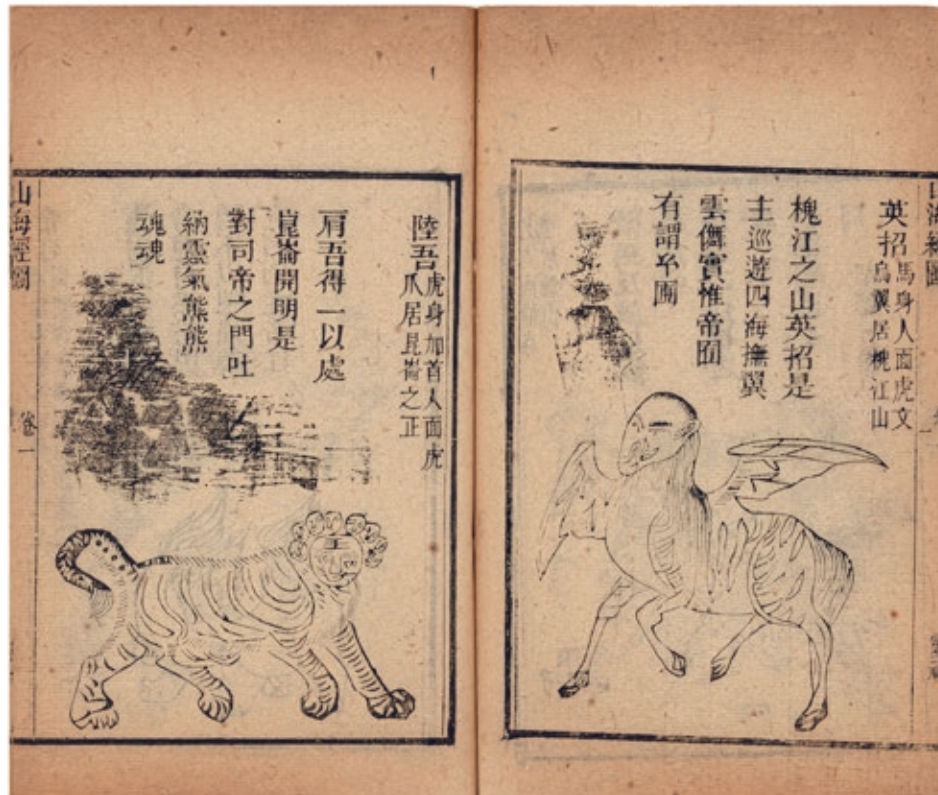 山海經圖
英招
馬身人面虎文
鳥翼居槐江山
槐江之山英招是
主巡遊四海撫翼
雲儛實惟帝
有謂圃
陸吾
虎身加首人面虎
爪居昆崙之正
肩吾得一以處
崑崙開明是
對司帝之門吐
納靈氣熊熊
魂魂
山海經圖
卷一